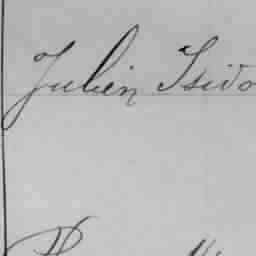 Julien Isido